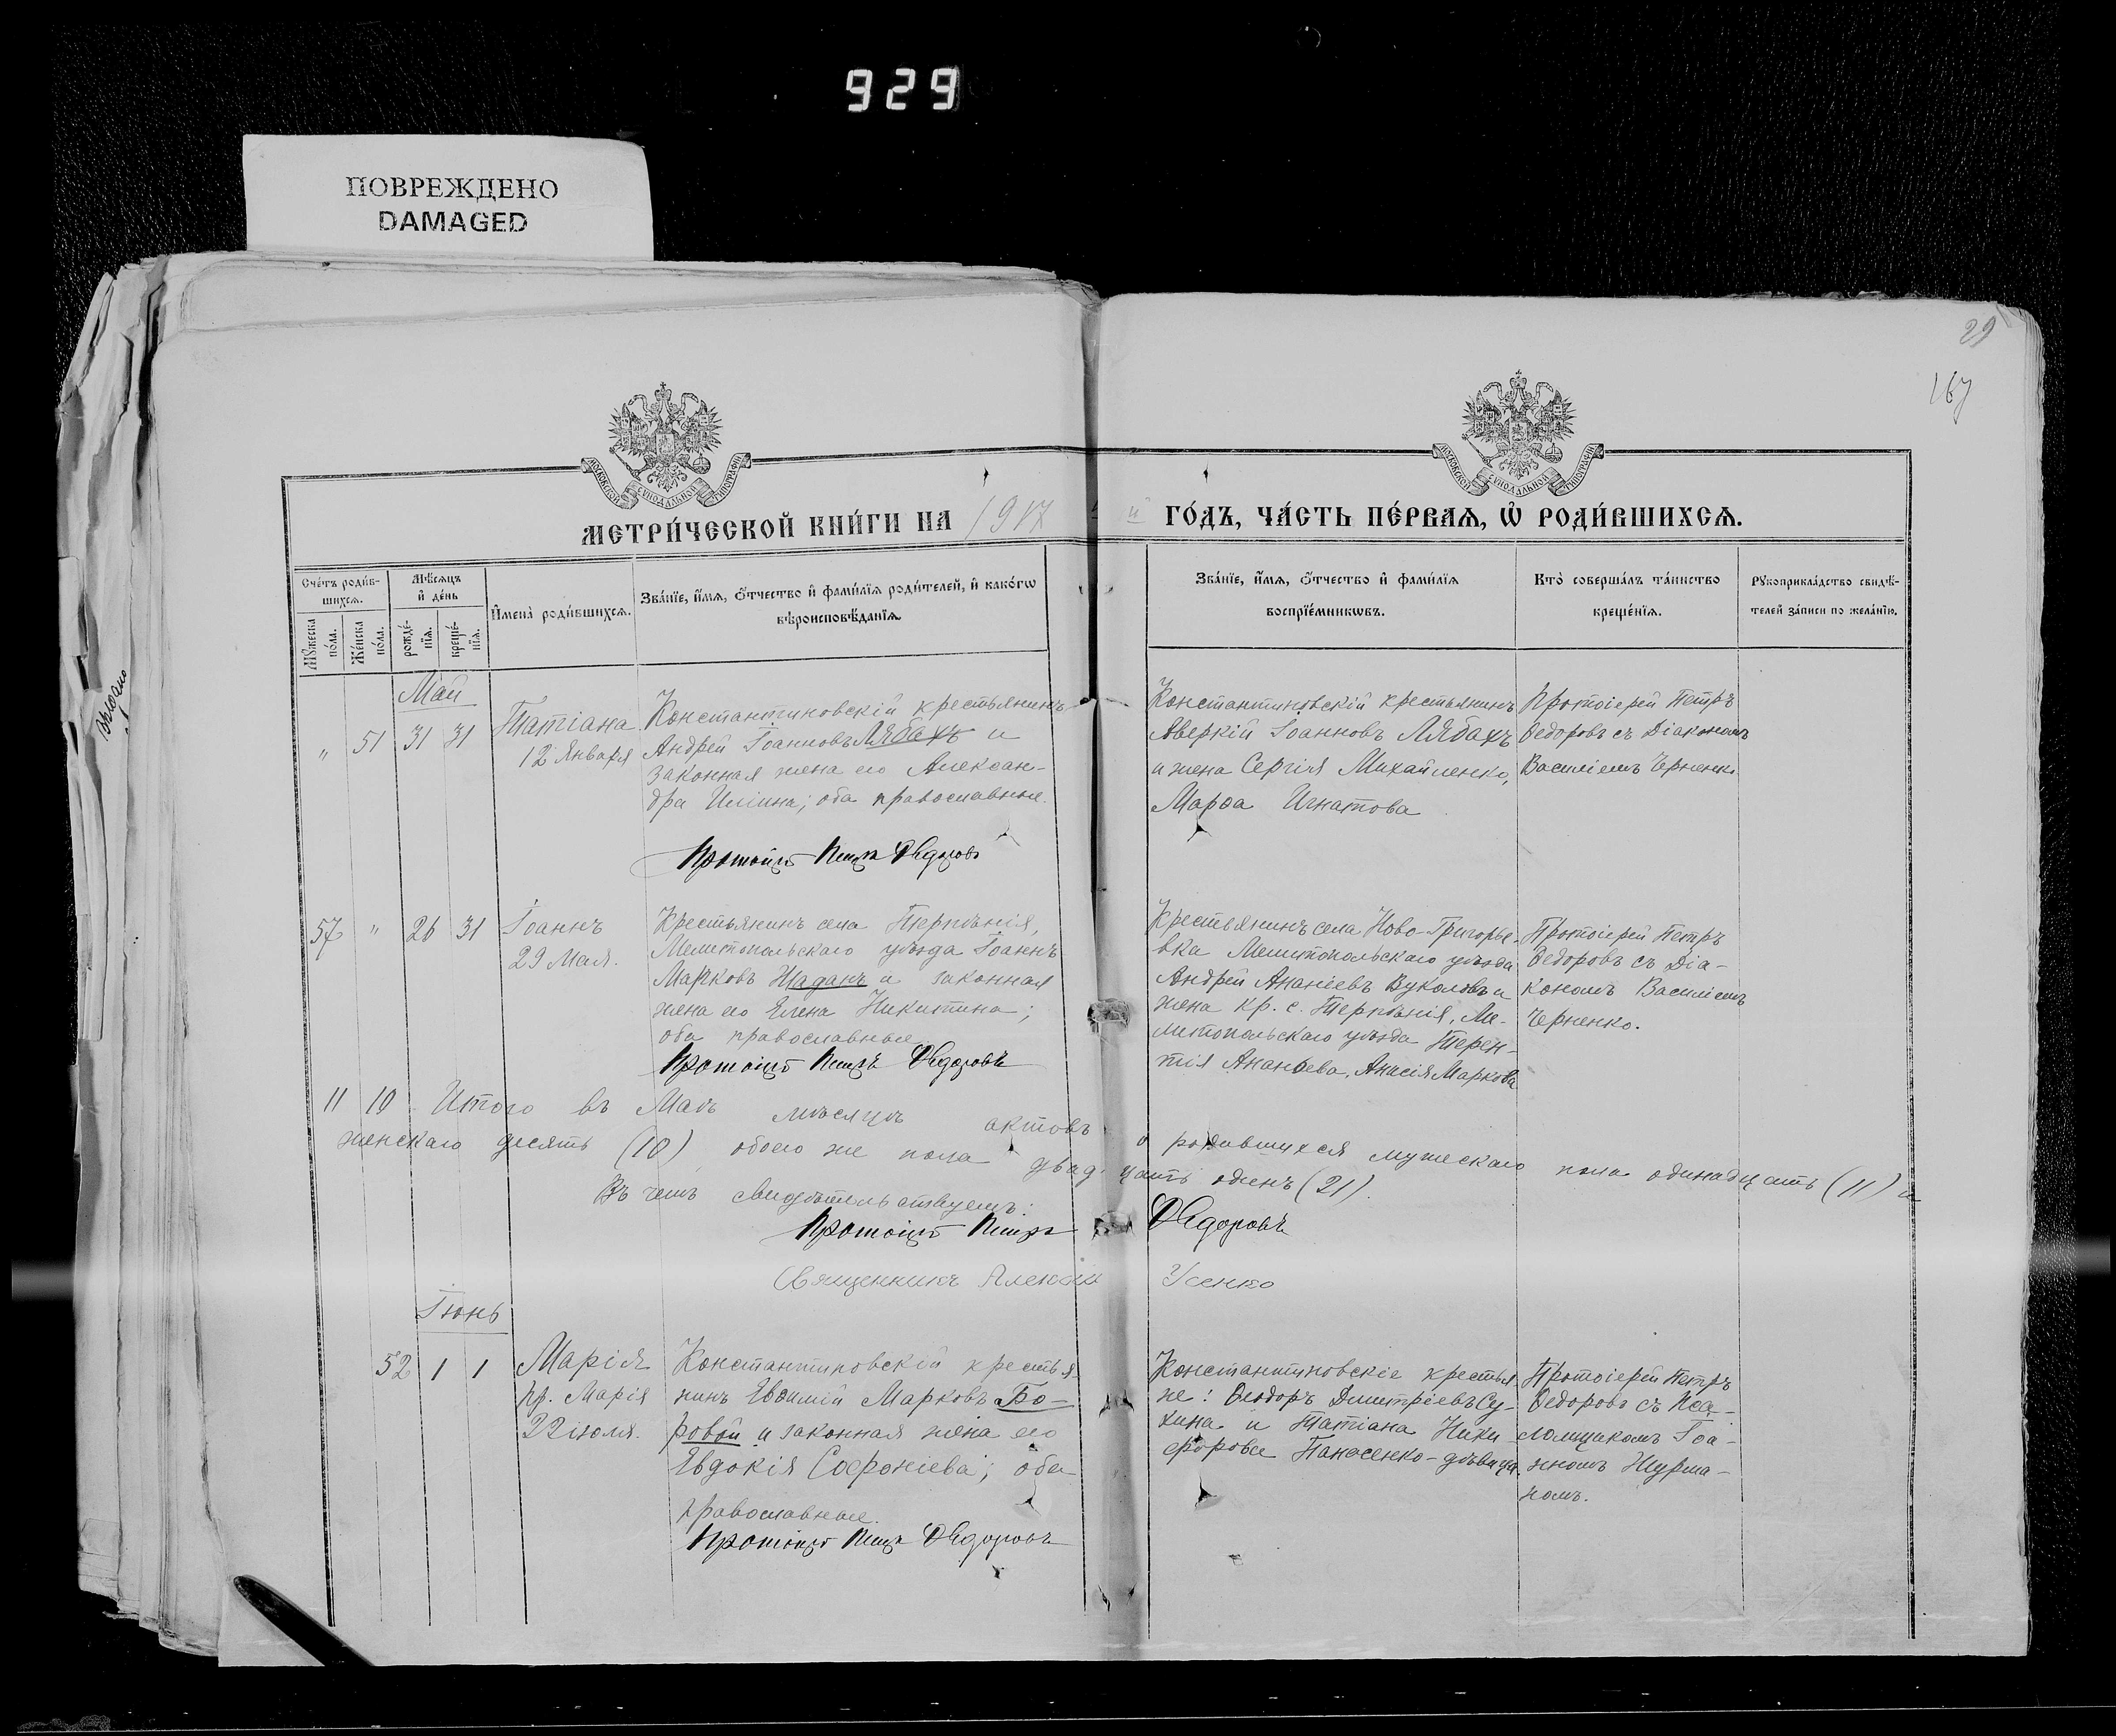 929
ПОВРЕЖДЕНО
DAMAGED
29
167
МОСКОВСКОЙ СѴНОДАЛЬНОЙ ТИПОГРАФІИ
МОСКОВСКОЙ СѴНОДАЛЬНОЙ ТИПОГРАФІИ
МЕТРИ́ЧЕСКОЙ КНИ́ГИ НА 1917 й ГО́ДЪ, ЧА́СТЬ ПЕ́РВАѦ, Ѽ РОДИ́ВШИХСѦ.
Сче́тъ роди́в-
шихсѧ.
Мꙋ́жеска по́ла.
Же́нска по́ла.
Мѣ́сѧцъ
и҆ де́нь
рожде́-
нїѧ.
креще́-
нїѧ.
И҆мена̀ роди́вшихсѧ.
Зва́нїе, и҆́мѧ, ѻ҆́тчество и҆ фами́лїѧ роди́телей, и҆ како́гѡ
вѣроисповѣ́данїѧ.
Зва́нїе, и҆́мѧ, ѻ҆́тчество и҆ фами́лїѧ
воспрїе́мникѡвъ.
Кто̀ соверша́лъ та́инство
креще́нїѧ.
Рꙋкоприкла́дство свидѣ́-
телей за́писи по жела́нїю.
Май
" 51 31 31
Татіана
12 Января
Константиновскій крестьянинъ
Андрей Іоанновъ Лябахъ и
законная жена его Алексан-
дра Иліина; оба православные.
Протоіерей Петръ Ѳедоровъ
Константиновскій крестьянинъ
Аверкій Іоанновъ Лябахъ
и жена Сергія Михайленко,
Марѳа Игнатова
Протоіерей Петръ
Ѳедоровъ съ Діакономъ
Василіемъ Черненко
57 " 26 31
Іоаннъ
29 Мая.
Крестьянинъ села Терпѣнія,
Мелитопольскаго уѣзда Іоаннъ
Марковъ Щаданъ и законная
жена его Елена Никитина;
оба православные
Протоіерей Петръ Ѳедоровъ
Крестьянинъ села Ново-Григорье-
вка Мелитопольскаго уѣзда
Андрей Ананіевъ Вуколовъ и
жена кр. с. Терпѣнія, Ме-
литопольскаго уѣзда Терен-
тія Ананьева, Анисія Маркова
Протоіерей Петръ
Ѳедоровъ съ Діа-
кономъ Василіемъ
Черненко.
11 10 Итого въ Маѣ мѣсяцѣ актовъ о родившихся мужескаго пола одинадцать (11) и
женскаго десять (10) обоего же пола двадцать одинъ (21).
Въ чемъ свидѣтельствуемъ:
Протоіерей Петръ Ѳедоровъ
Священникъ Алексій Усенко
Іюнь
52 1 1
Марія
пр. Марія
22 іюля.
Константиновскій крестья-
нинъ Евѳимій Марковъ Бо-
ровой и законная жена его
Евдокія Софроніева; оба
православные.
Протоіерей Петръ Ѳедоровъ
Константиновскіе крестья-
не: Ѳеодоръ Димитріевъ Су-
хина и Татіана Ники-
форова Панасенко-дѣвица.
Протоіерей Петръ
Ѳедоровъ съ Пса-
ломщикомъ Іоа-
нномъ Шурма-
номъ.